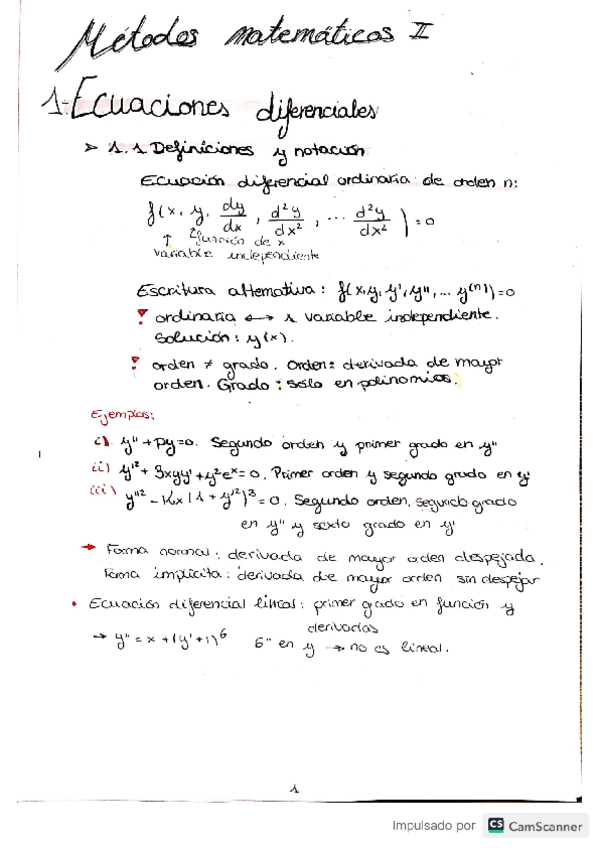 Métodos matemáticos II
1-Ecuaciones diferenciales
➤ 1.1 Definiciones y notación
Ecuación diferencial ordinaria de orden n:
f(x, y, dy/dx, d²y/dx², ... d²y/dx²) = 0
↑ función de x
variable independiente
Escritura alternativa: f(x,y,y',y'',... y⁽ⁿ⁾)=0
! ordinaria ↔ 1 variable independiente.
Solución: y(x).
! orden ≠ grado. Orden: derivada de mayor
orden. Grado: sólo en polinomios.
Ejemplos:
i) y'' + py=0. Segundo orden y primer grado en y''
ii) y'² + 3xyy' + y²eˣ = 0. Primer orden y segundo grado en y'
iii) y''² - Kx(1 + y'²)³ = 0. Segundo orden, segundo grado
en y'' y sexto grado en y'
→ Forma normal: derivada de mayor orden despejada.
Forma implícita: derivada de mayor orden sin despejar
• Ecuación diferencial lineal: primer grado en función y
derivadas
→ y'' = x + (y'+1)⁶ 6º en y → no es lineal.
1
Impulsado por CS CamScanner